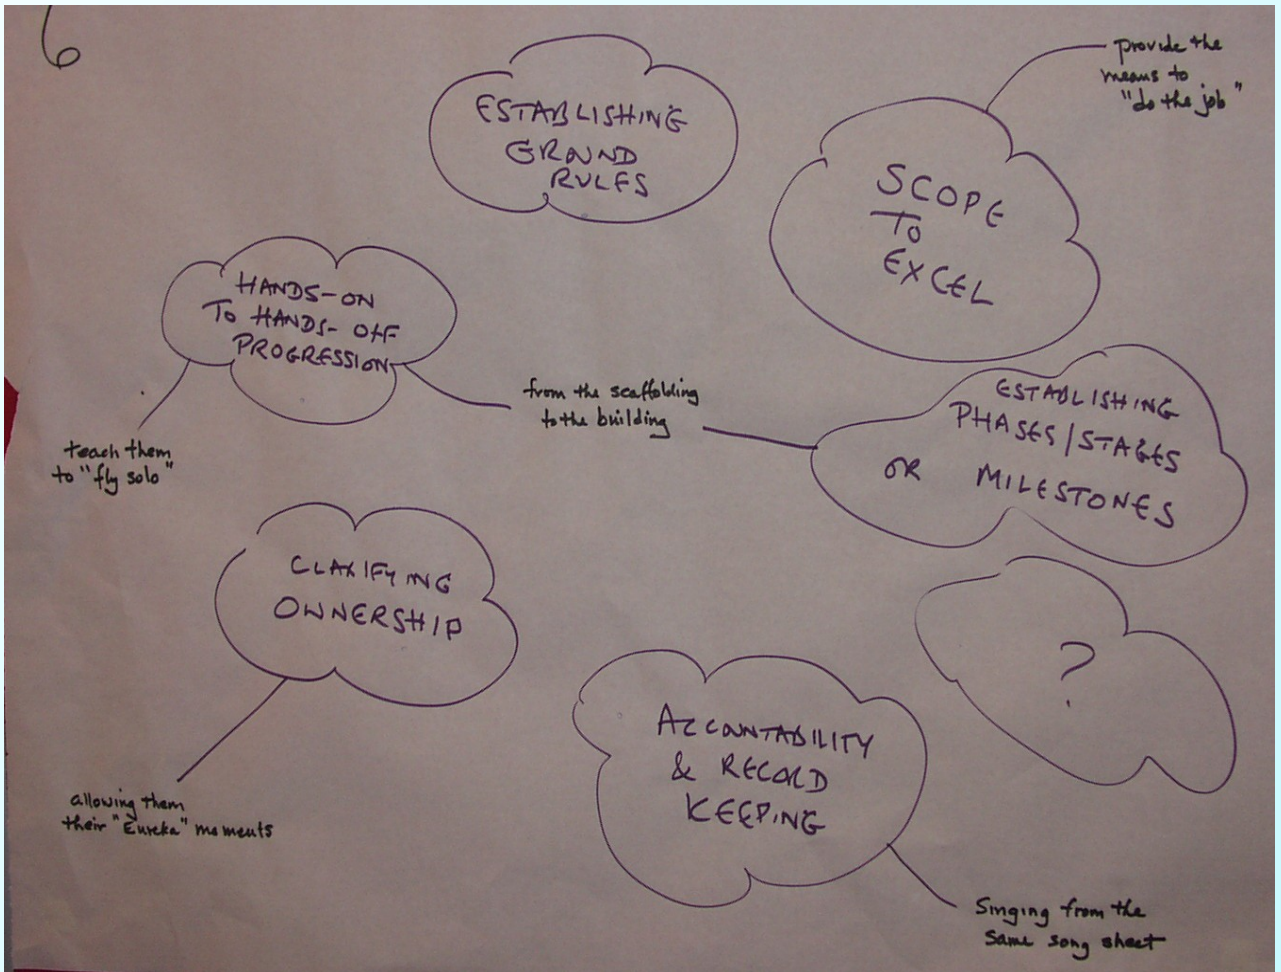 6
ESTABLISHING
GROUND
RULES
provide the
means to
"do the job"
SCOPE
TO
EXCEL
HANDS-ON
TO HANDS-OFF
PROGRESSION
teach them
to "fly solo"
from the scaffolding
to the building
ESTABLISHING
PHASES/STAGES
OR MILESTONES
CLARIFYING
OWNERSHIP
allowing them
their "Eureka" moments
?
ACCOUNTABILITY
& RECORD
KEEPING
Singing from the
same song sheet